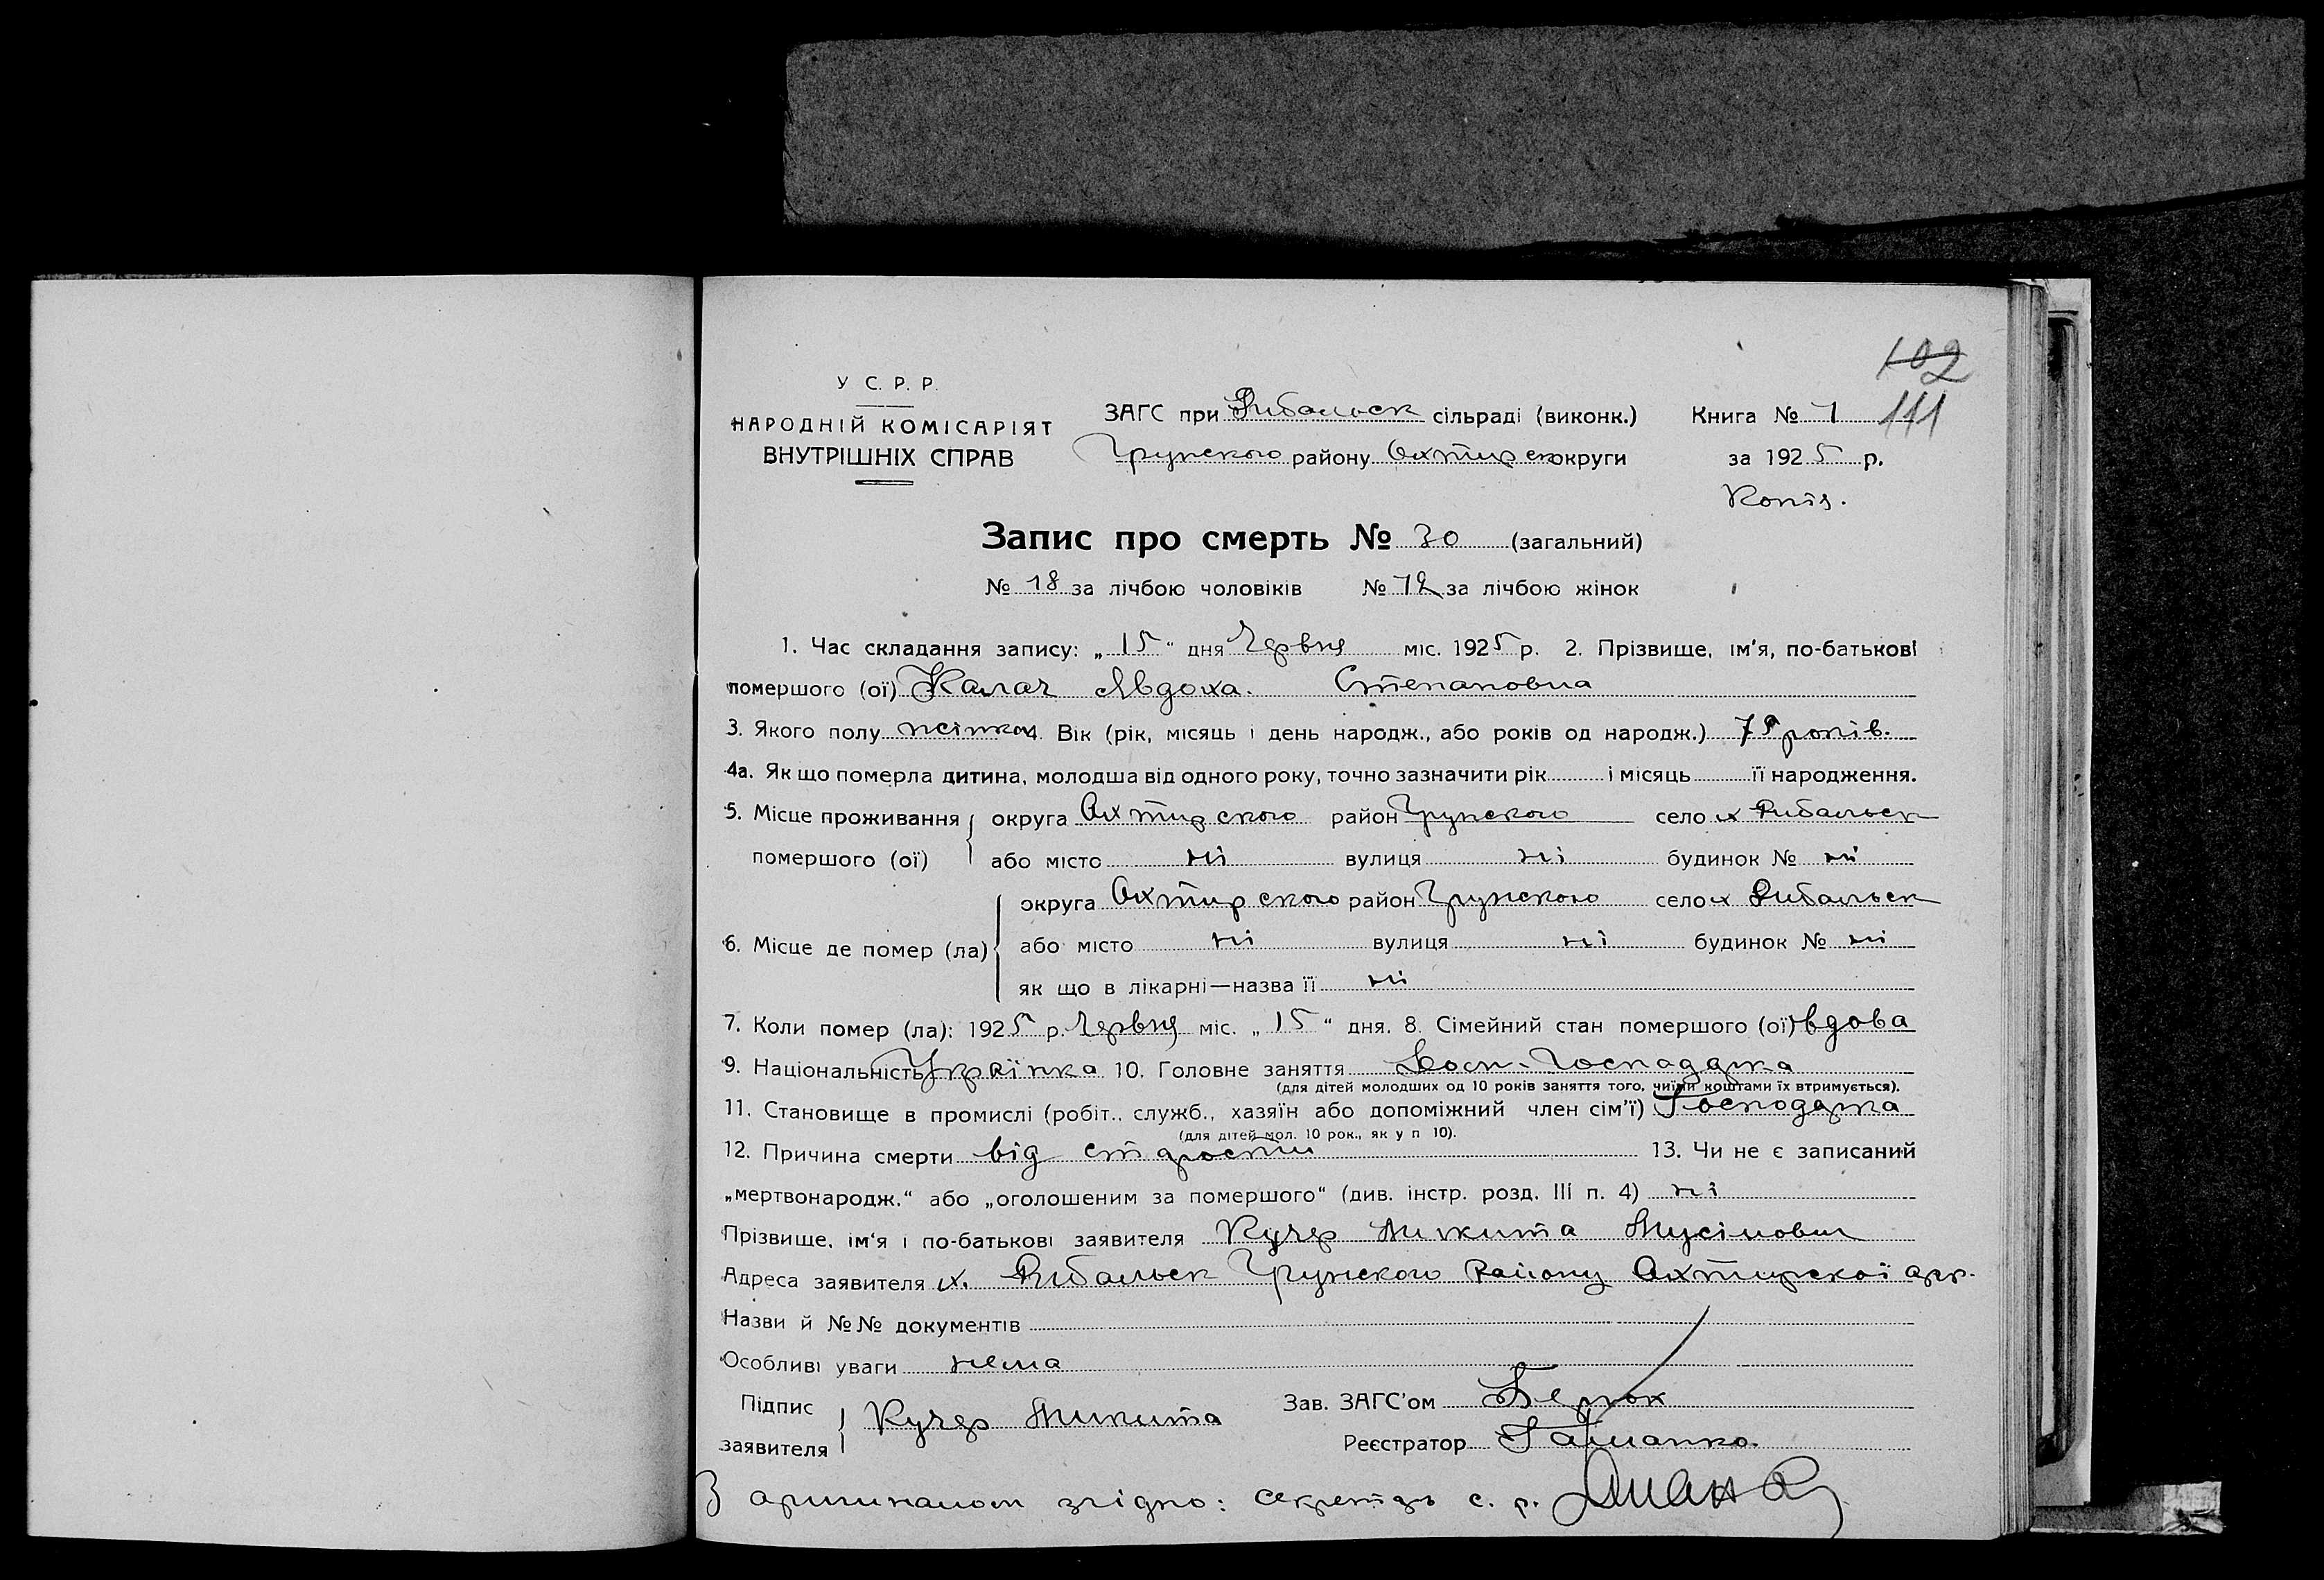 102
111
У С. Р. Р.
НАРОДНІЙ КОМІСАРІЯТ
ВНУТРІШНІХ СПРАВ
ЗАГС при Рибальск сільраді (виконк.)
Грунского району Охтирск округи
Книга № 1
за 1925 р.
Копія.
Запис про смерть № 30 (загальний)
№ 18 за лічбою чоловіків № 12 за лічбою жінок
1. Час складання запису: „15“ дня Червня міс. 1925 р. 2. Прізвище, ім'я, по-батькові
помершого (ої) Калач Явдоха. Степановна
3. Якого полу жінка 4. Вік (рік, місяць і день народж., або років од народж.) 75 років.
4а. Як що померла дитина, молодша від одного року, точно зазначити рік і місяць її народження.
5. Місце проживання помершого (ої) округа Охтирского район Грунского село х Рибальск
або місто ні вулиця ні будинок № ні
6. Місце де помер (ла) округа Охтирского район Грунского село х Рибальск
або місто ні вулиця ні будинок № ні
як що в лікарні—назва її ні
7. Коли помер (ла): 1925 р. Червня міс. „15“ дня. 8. Сімейний стан помершого (ої) вдова
9. Національність Українка 10. Головне заняття Господарка
(для дітей молодших од 10 років заняття того, чиїми коштами їх втримується).
11. Становище в промислі (робіт., служб., хазяїн або допоміжний член сім'ї) Господарка
(для дітей мол. 10 рок., як у п 10).
12. Причина смерти від старости 13. Чи не є записаний
„мертвонародж.“ або „оголошеним за помершого“ (див. інстр. розд. III п. 4) ні
Прізвище, ім'я і по-батькові заявителя Кучер Микита Мусійович
Адреса заявителя х. Рибальск Грунского Району Охтирскої окр.
Назви й №№ документів
Особливі уваги нема
Підпис заявителя Кучер Микита
Зав. ЗАГС'ом
Реєстратор
З оригиналом згідно: секретарь с. р.